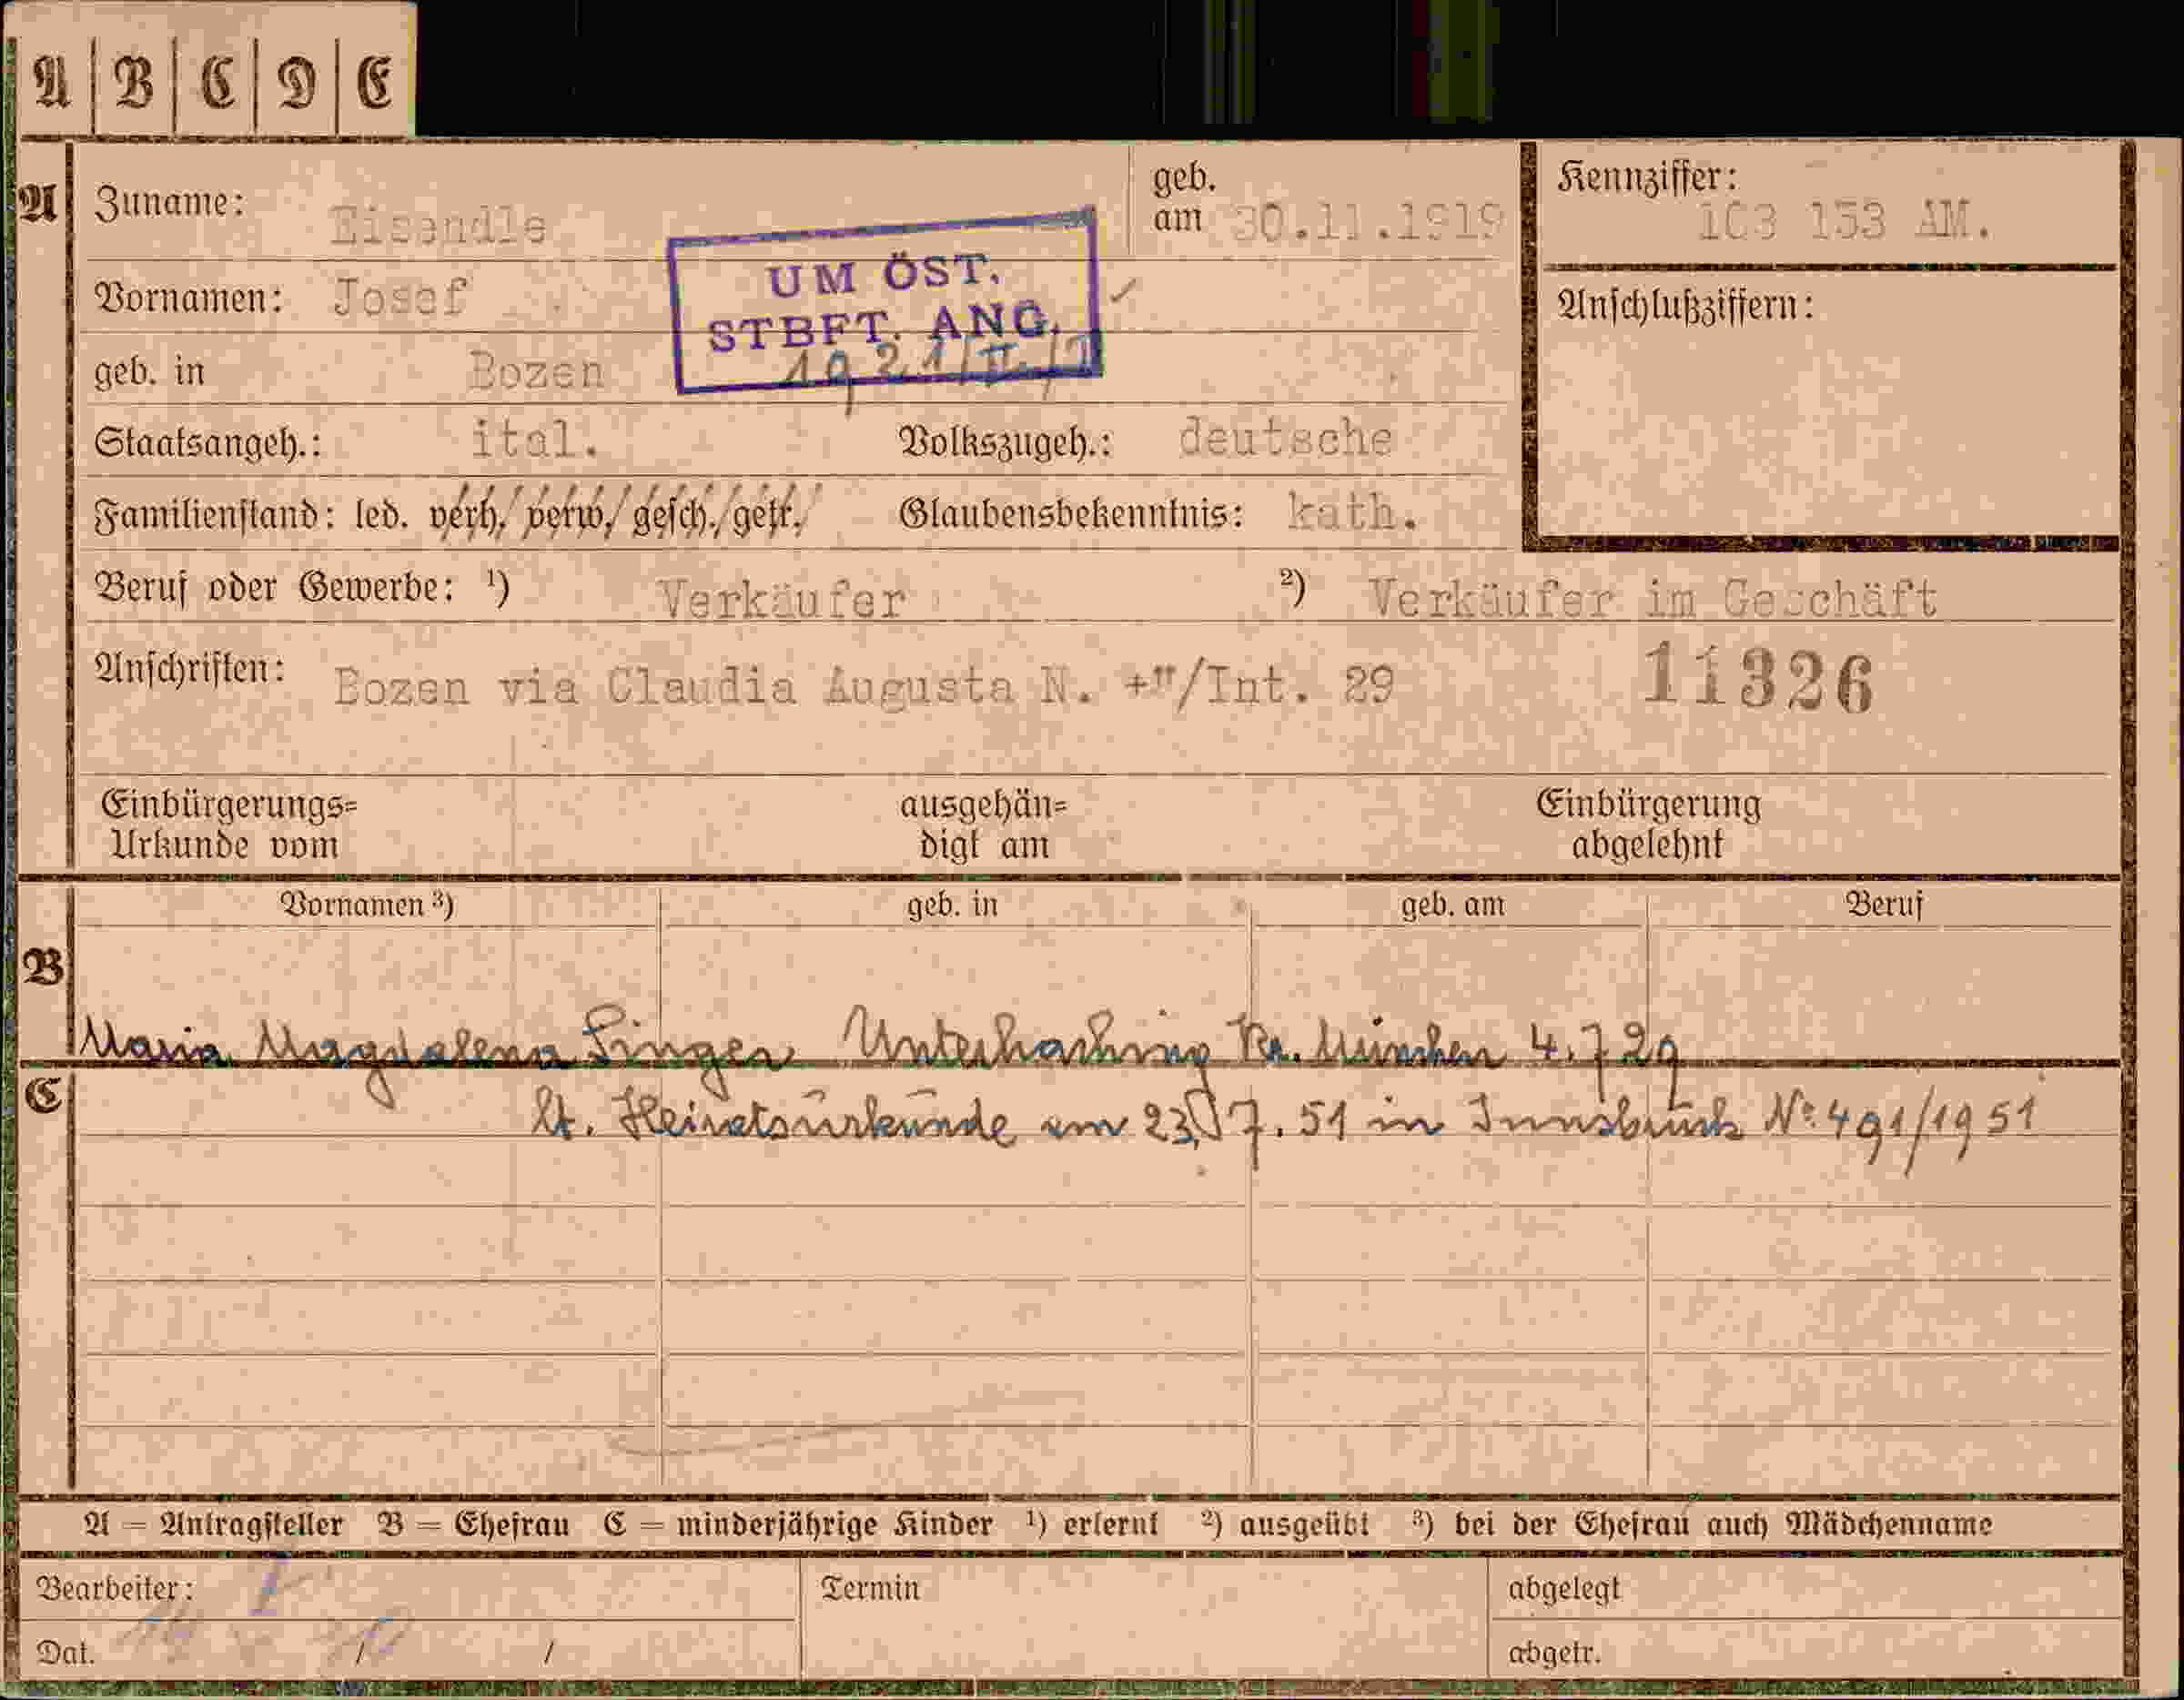 A | B | C | D | E
A Zuname: Eisendle geb. am 30.11.1919 Kennziffer: 103 153 AM.
Vornamen: Josef Anschlußziffern:
UM ÖST.
STBFT. ANG.
1921/II
geb. in Bozen
Staatsangeh.: ital. Volkszugeh.: deutsche
Familienstand: led. verh. verw. gesch. getr. Glaubensbekenntnis: kath.
Beruf oder Gewerbe: ¹) Verkäufer ²) Verkäufer im Geschäft
Anschriften: Bozen via Claudia Augusta N. +"/Int. 29 11326
Einbürgerungs= ausgehän= Einbürgerung
Urkunde vom digt am abgelehnt
Vornamen ³) geb. in geb. am Beruf
B
Maria Magdalena Singer Unterhaching Kr. München 4.7.29
C
lt. Heiratsurkunde am 23.7.51 in Innsbruck No. 491/1951
A = Antragsteller B = Ehefrau C = minderjährige Kinder ¹) erlernt ²) ausgeübt ³) bei der Ehefrau auch Mädchenname
Bearbeiter: Termin abgelegt
Dat. / / abgetr.